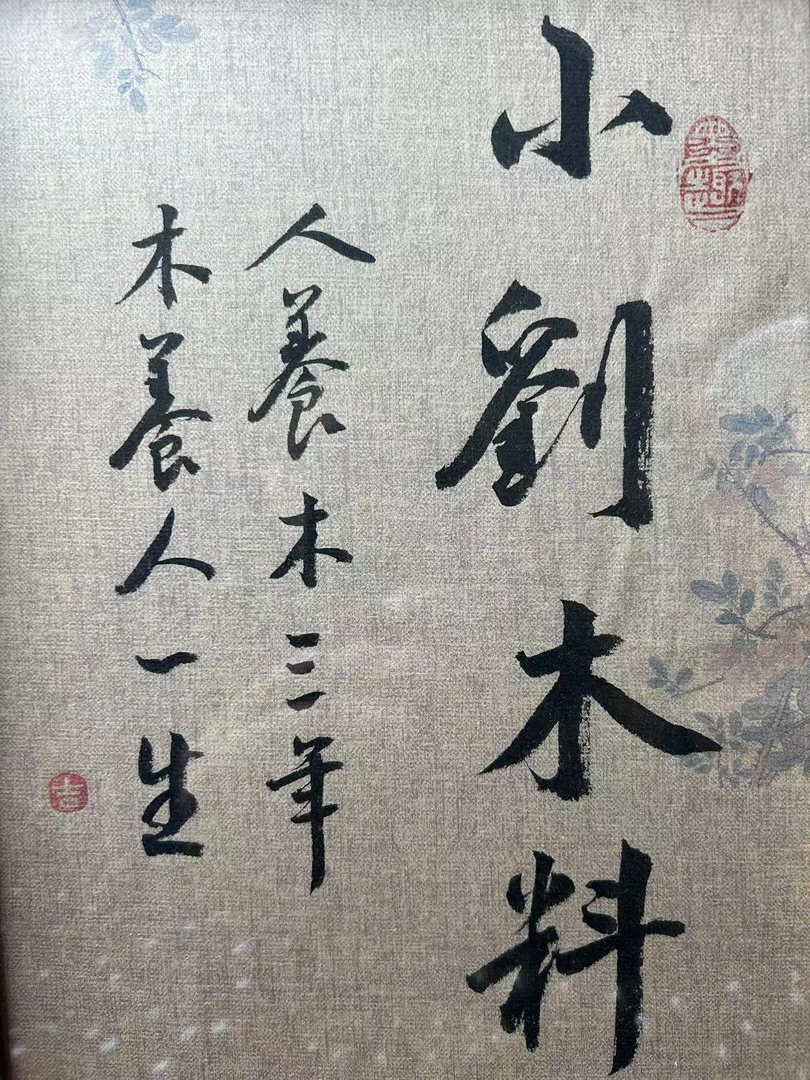 小劉木料
人養木三年
木養人一生
吉